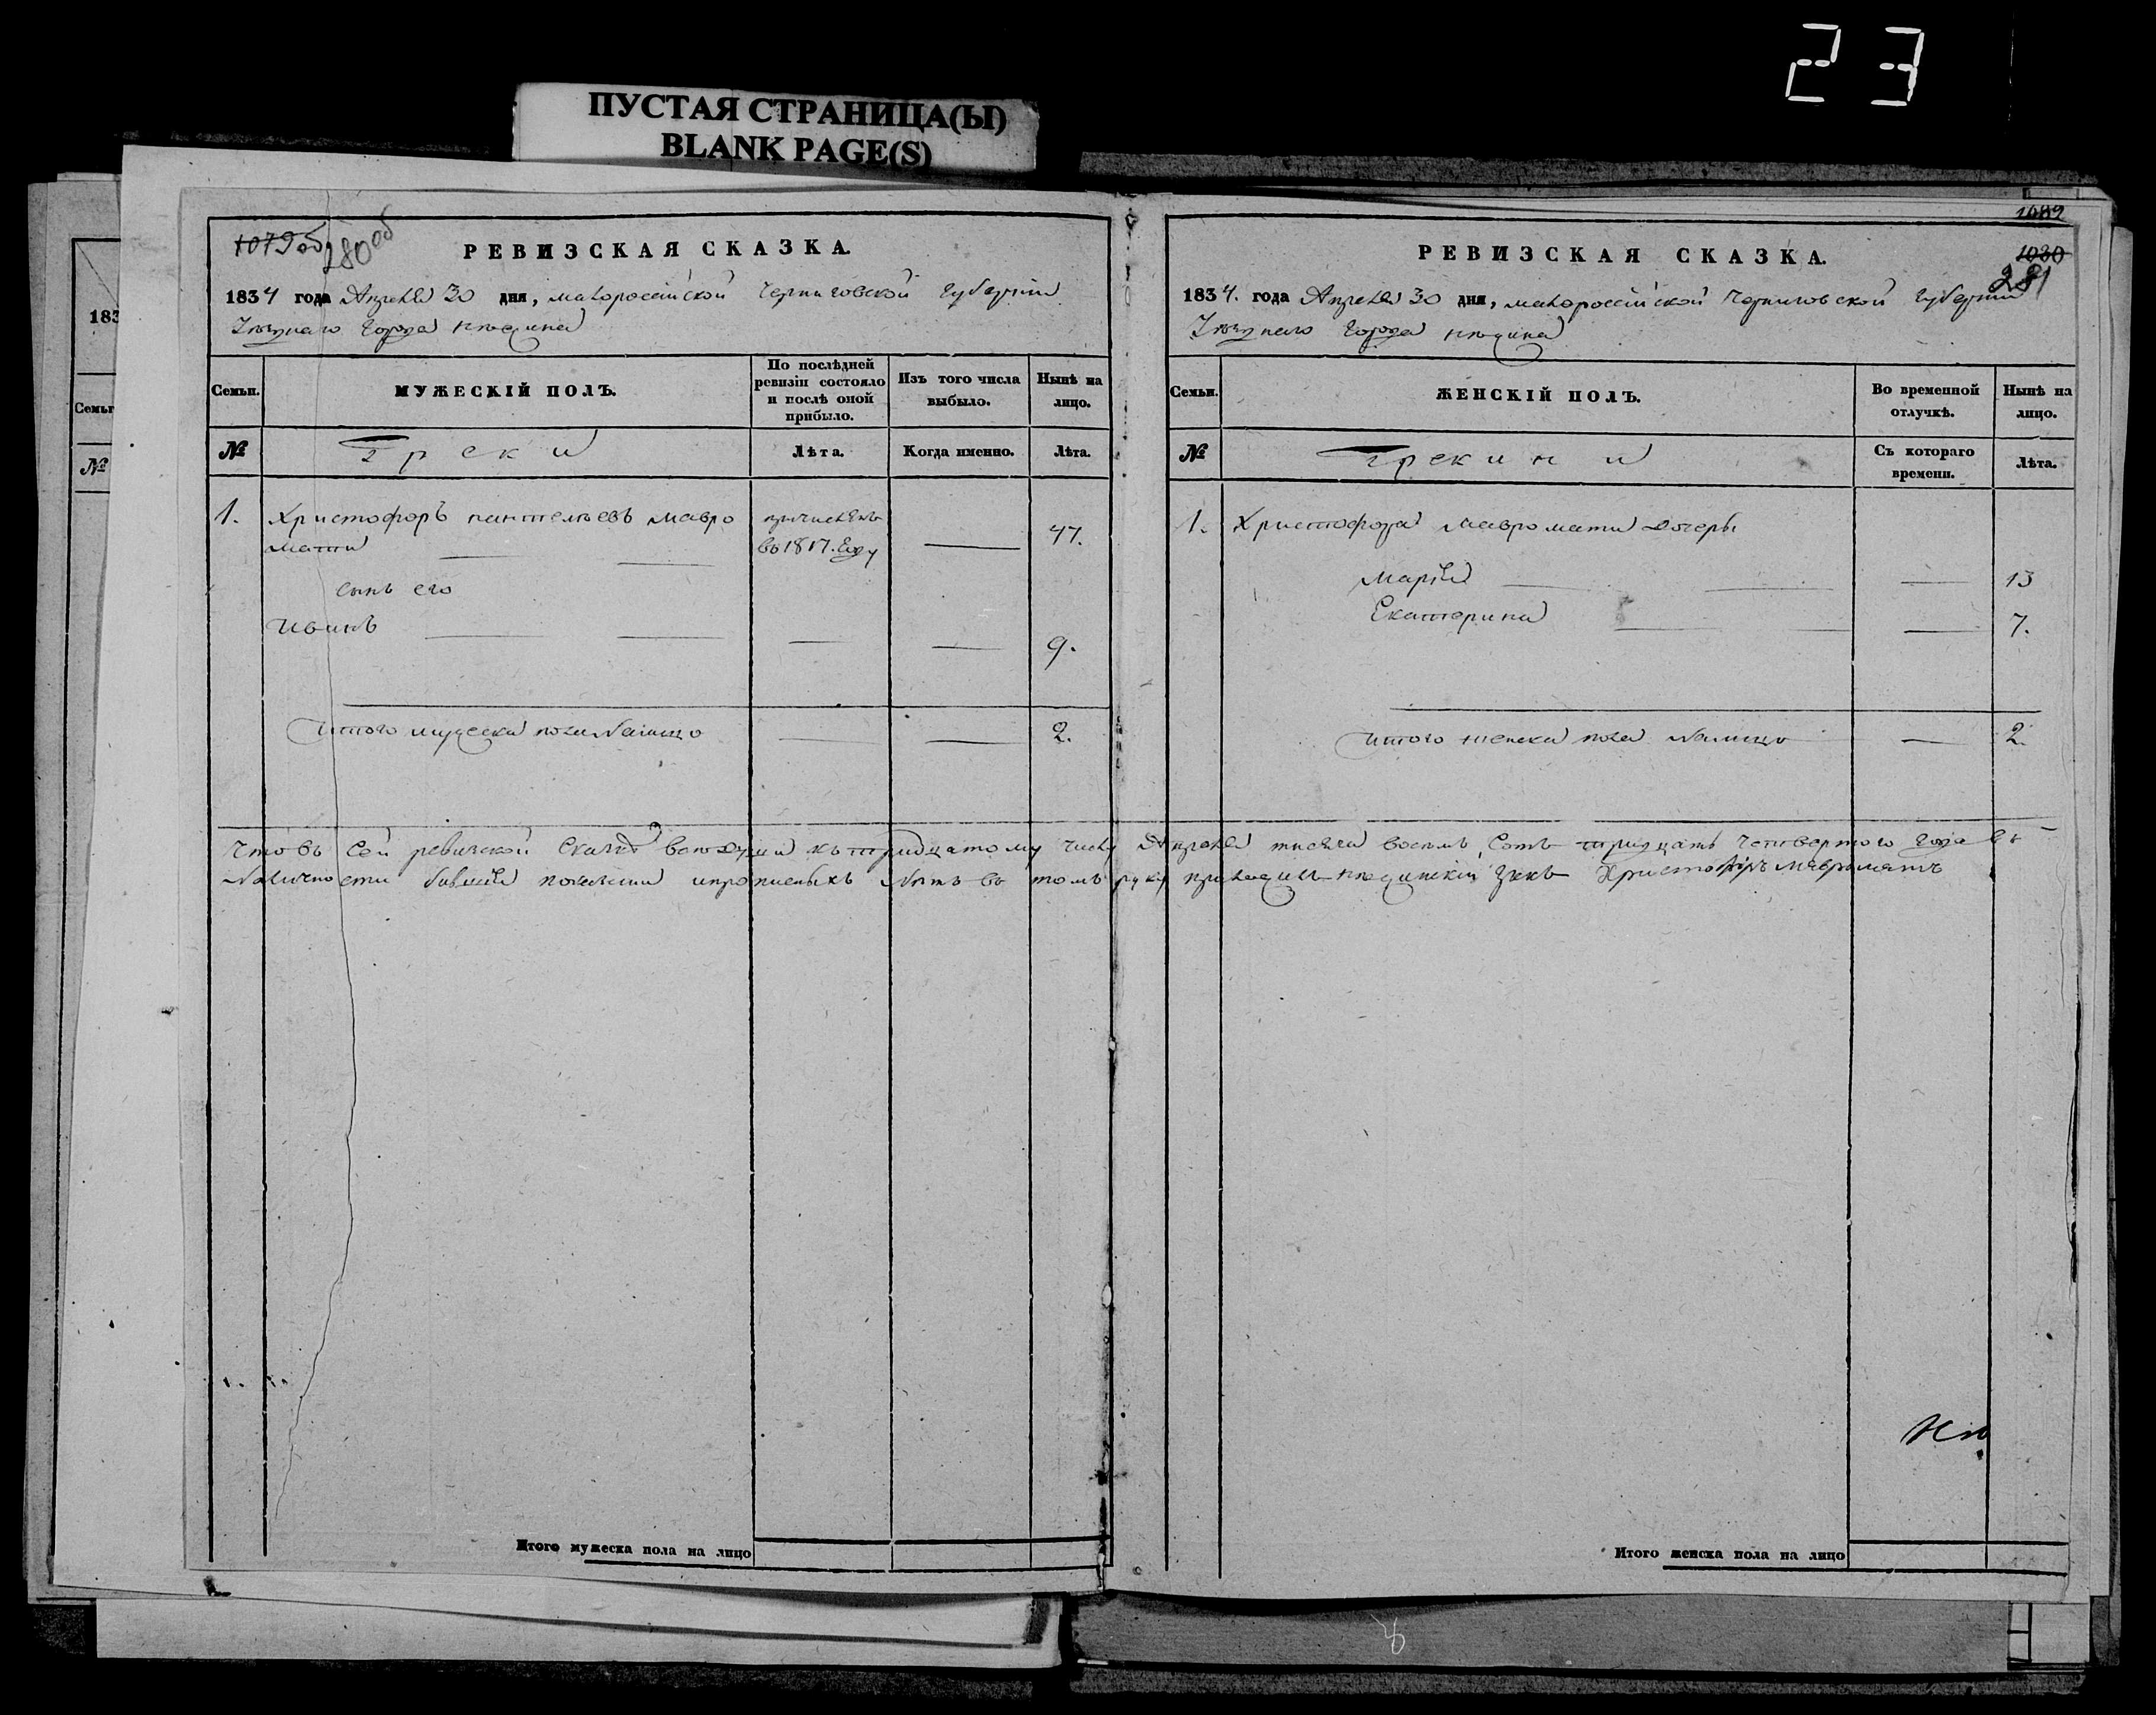 23
ПУСТАЯ СТРАНИЦА(Ы)
BLANK PAGE(S)
183
Семьи
№
1079 об
280 об
РЕВИЗСКАЯ СКАЗКА.
1834 года Апреля 30 дня, малороссійской Черниговской Губерніи
Уѣзднаго Города Нѣжина
Семьи.
МУЖЕСКІЙ ПОЛЪ.
По послѣдней ревизіи состояло и послѣ оной прибыло.
Изъ того числа выбыло.
Нынѣ на лицо.
№
Греки
Лѣта.
Когда именно.
Лѣта.
1. Христофоръ Пантелѣевъ Мавро
причисленъ
мати
въ 1817. Году
47.
сынъ его
Иванъ
9.
Итого мужеска пола налицо 2.
Итого мужеска пола на лицо
1089
1030
281
РЕВИЗСКАЯ СКАЗКА.
1834. года Апреля 30 дня, малороссійской Черниговской Губерніи
Уѣзднаго Города Нѣжина
Семьи.
ЖЕНСКІЙ ПОЛЪ.
Во временной отлучкѣ.
Нынѣ на лицо.
№
Грекини
Съ котораго времени.
Лѣта.
1. Христофора Мавромати дочери
Марія 13
Екатерина 7.
Итого женска пола налицо 2.
Что въ сей ревизской Сказкѣ всѣ души къ тридцатому числу Апреля тысяча восемь сотъ тридцать четвертого года въ
Наличности бывшія показаны и прописныхъ нѣтъ въ томъ руку приложилъ Нѣжинскій Грекъ Христофоръ Мавромати
Итого женска пола на лицо